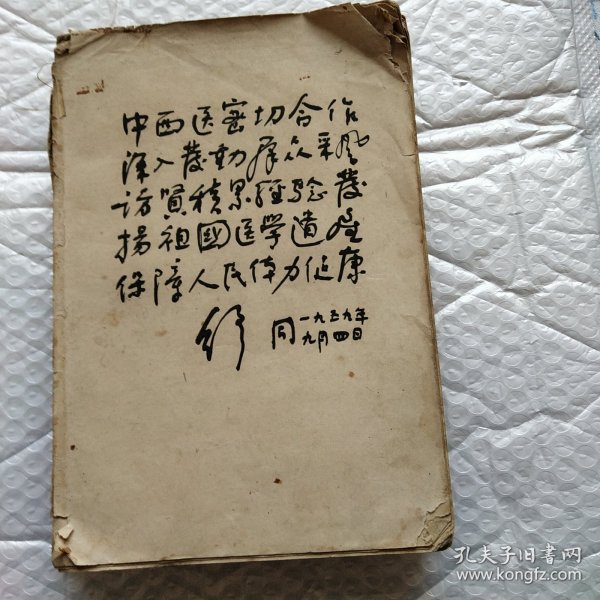 中西医密切合作
深入發动群众采风
访賢積累经验發
揚祖國医学遗產
保障人民体力健康
舒同 一九五九年
九月四日
孔夫子旧书网
www.kongfz.com